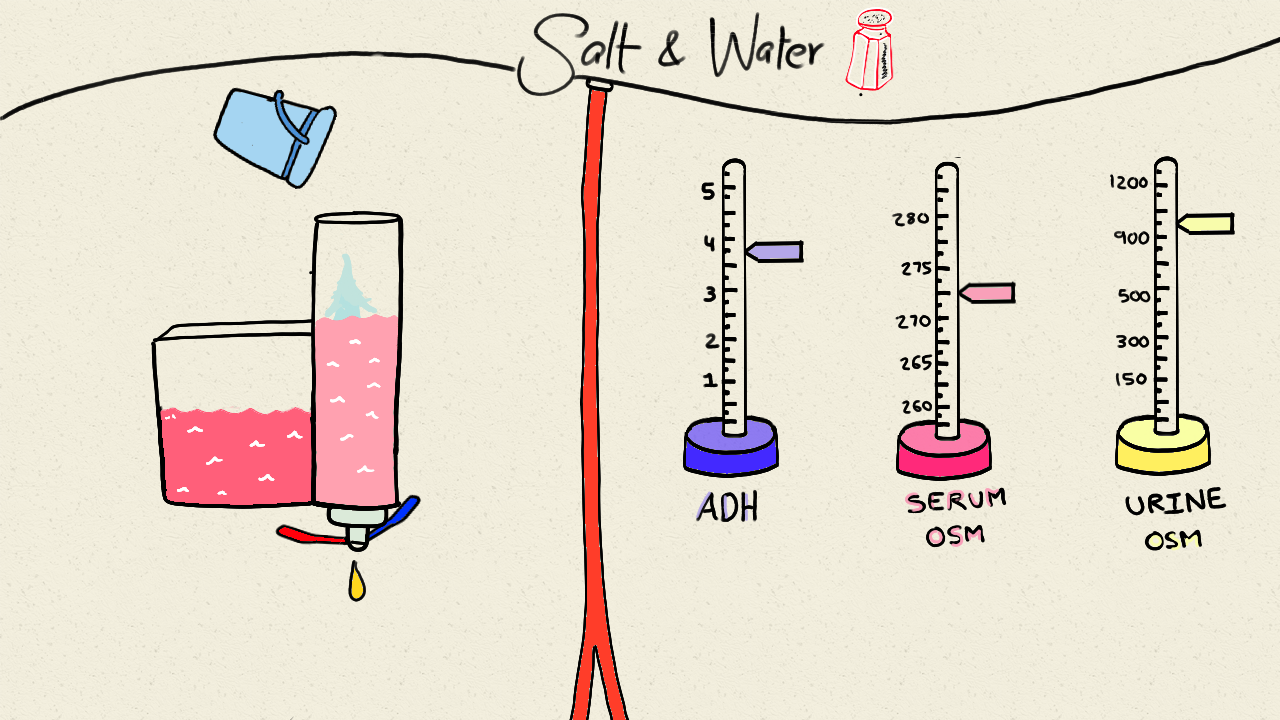 Salt & Water
5
4
3
2
1
ADH
280
275
270
265
260
SERUM
OSM
1200
900
500
300
150
URINE
OSM